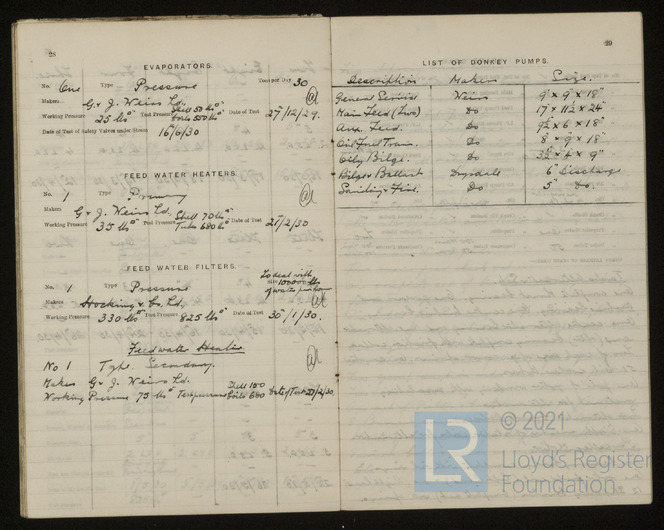 28
EVAPORATORS.
No. One Type Pressure Tons per Day 30
Makers G & J. Weirs Ld.
Working Pressure 25 lbs□" Test Pressure Shell 50 lbs□" Coils 550 lbs□" Date of Test 27/12/29.
Date of Test of Safety Valves under Steam 16/6/30
FEED WATER HEATERS.
No. 1 Type Primary
Makers G & J. Weirs Ld.
Working Pressure 35 lbs□" Test Pressure Shell 70 lbs□" Tubes 680 lbs Date of Test 21/2/30
FEED WATER FILTERS.
No. 1 Type Pressure To deal with 100000 lbs of water per hour
Makers Hocking & Co. Ld.
Working Pressure 330 lbs□" Test Pressure 825 lbs□" Date of Test 30/1/30.
Feedwater Heater
No 1 Type. Secondary.
Makers G & J. Weirs Ld.
Working Pressure 75 lbs□" Test pressure Shell 150 Coils 680 Date of Test 21/2/30.
29
LIST OF DONKEY PUMPS.
Description Makers Size.
General Service Weirs 9" × 9" × 18"
Main Feed (Two) Do 17" × 11½" × 24"
Aux. Feed. Do 9½" × 6" × 18"
Oil Fuel Trans. Do 8" × 9" × 18"
Oily Bilge. Do 3½" × 4" × 9"
Bilge & Ballast Drysdale 6" discharge
Sanitary & Fire. Do 5" Do.
© 2021
LR
Lloyd's Register
Foundation